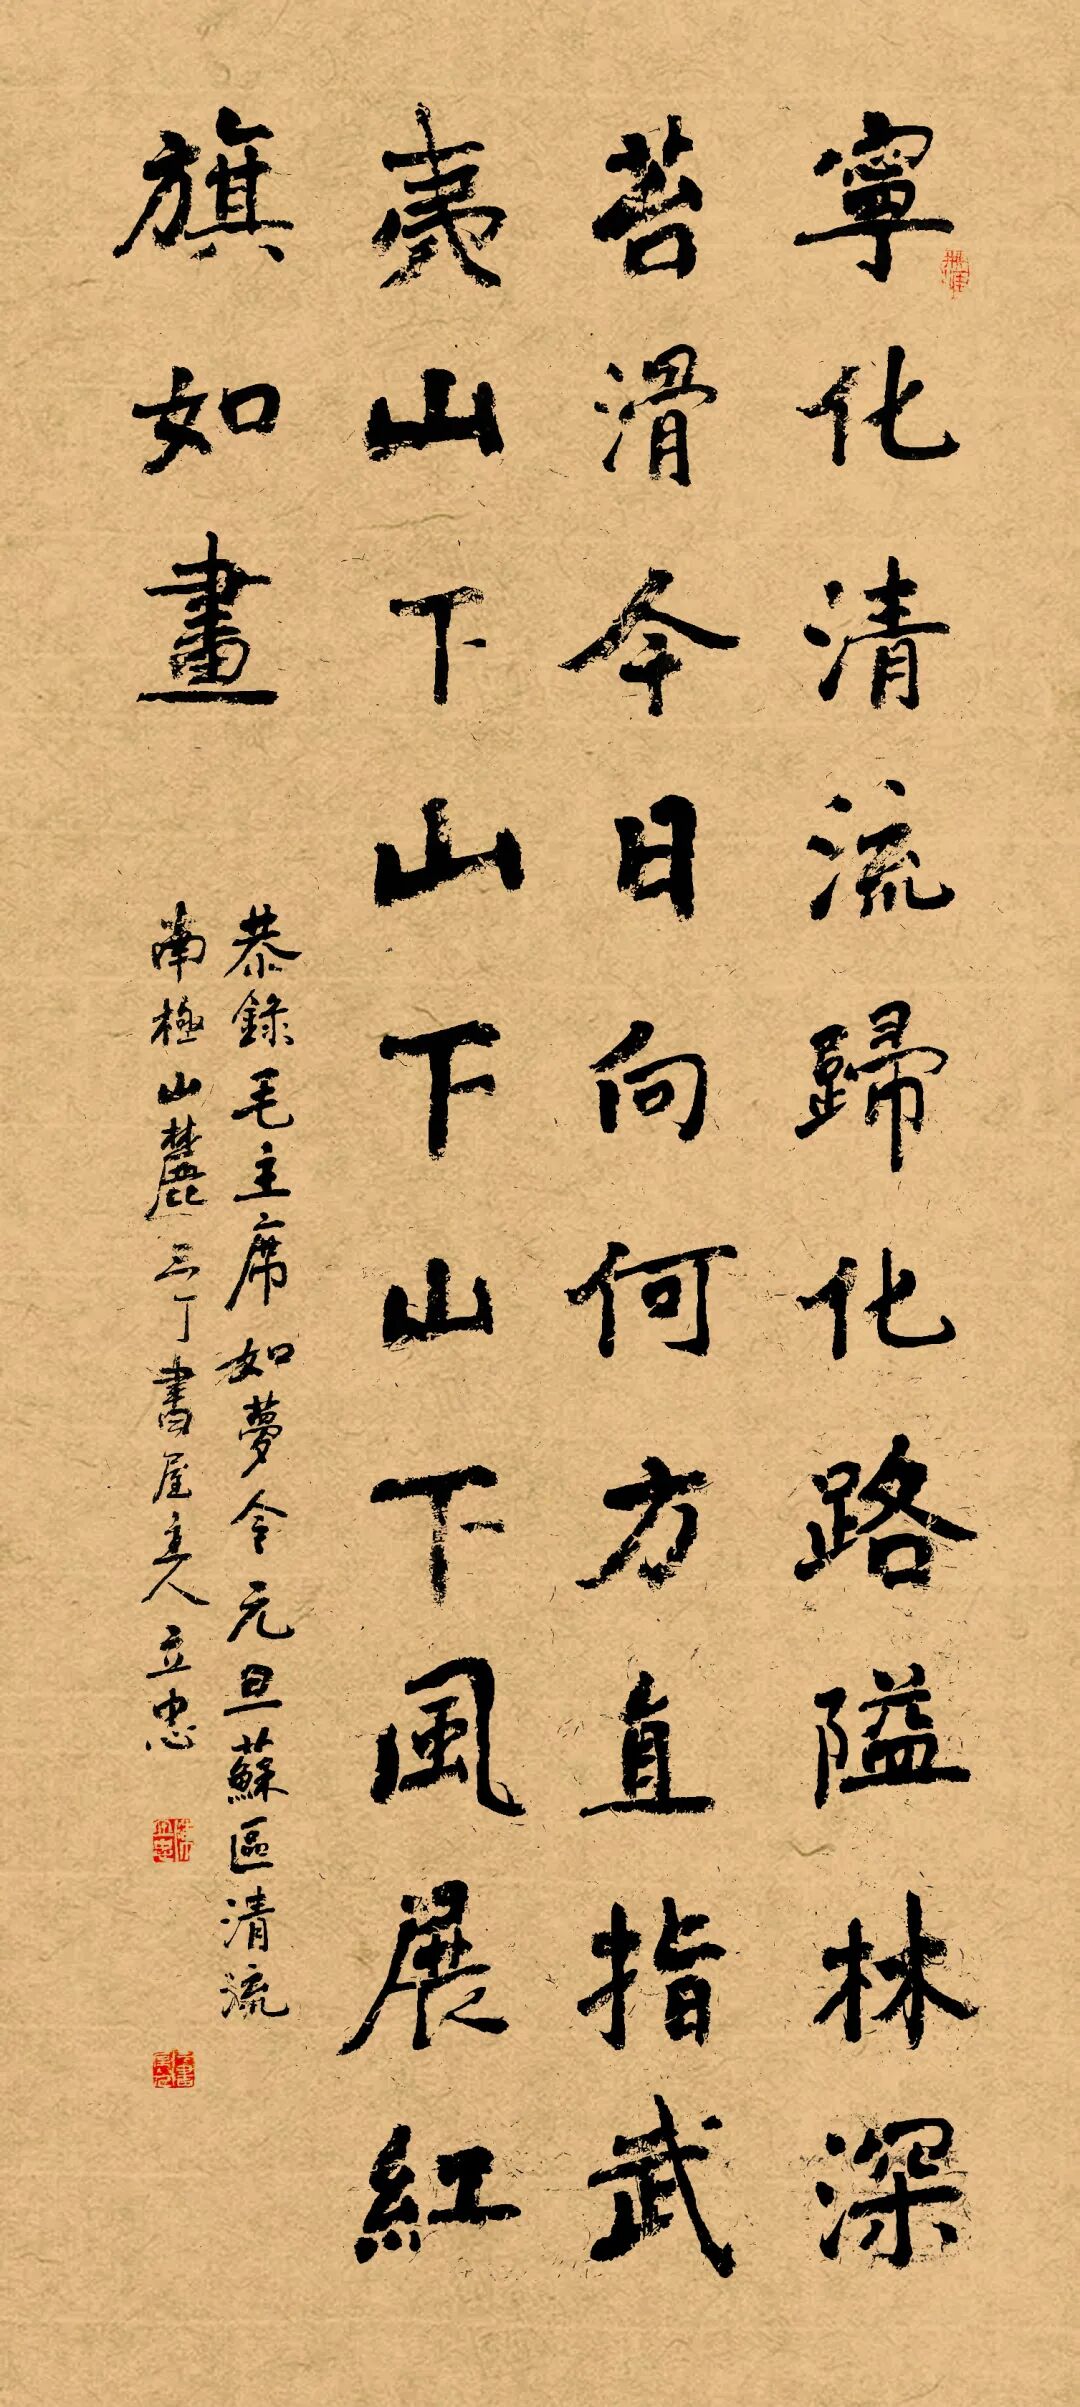 寧化清流歸化路隘林深
苔滑今日向何方直指武
夷山下山下山下風展紅
旗如畫
恭錄毛主席如夢令元旦蘇區清流
南極山麓三丁書屋主人立忠